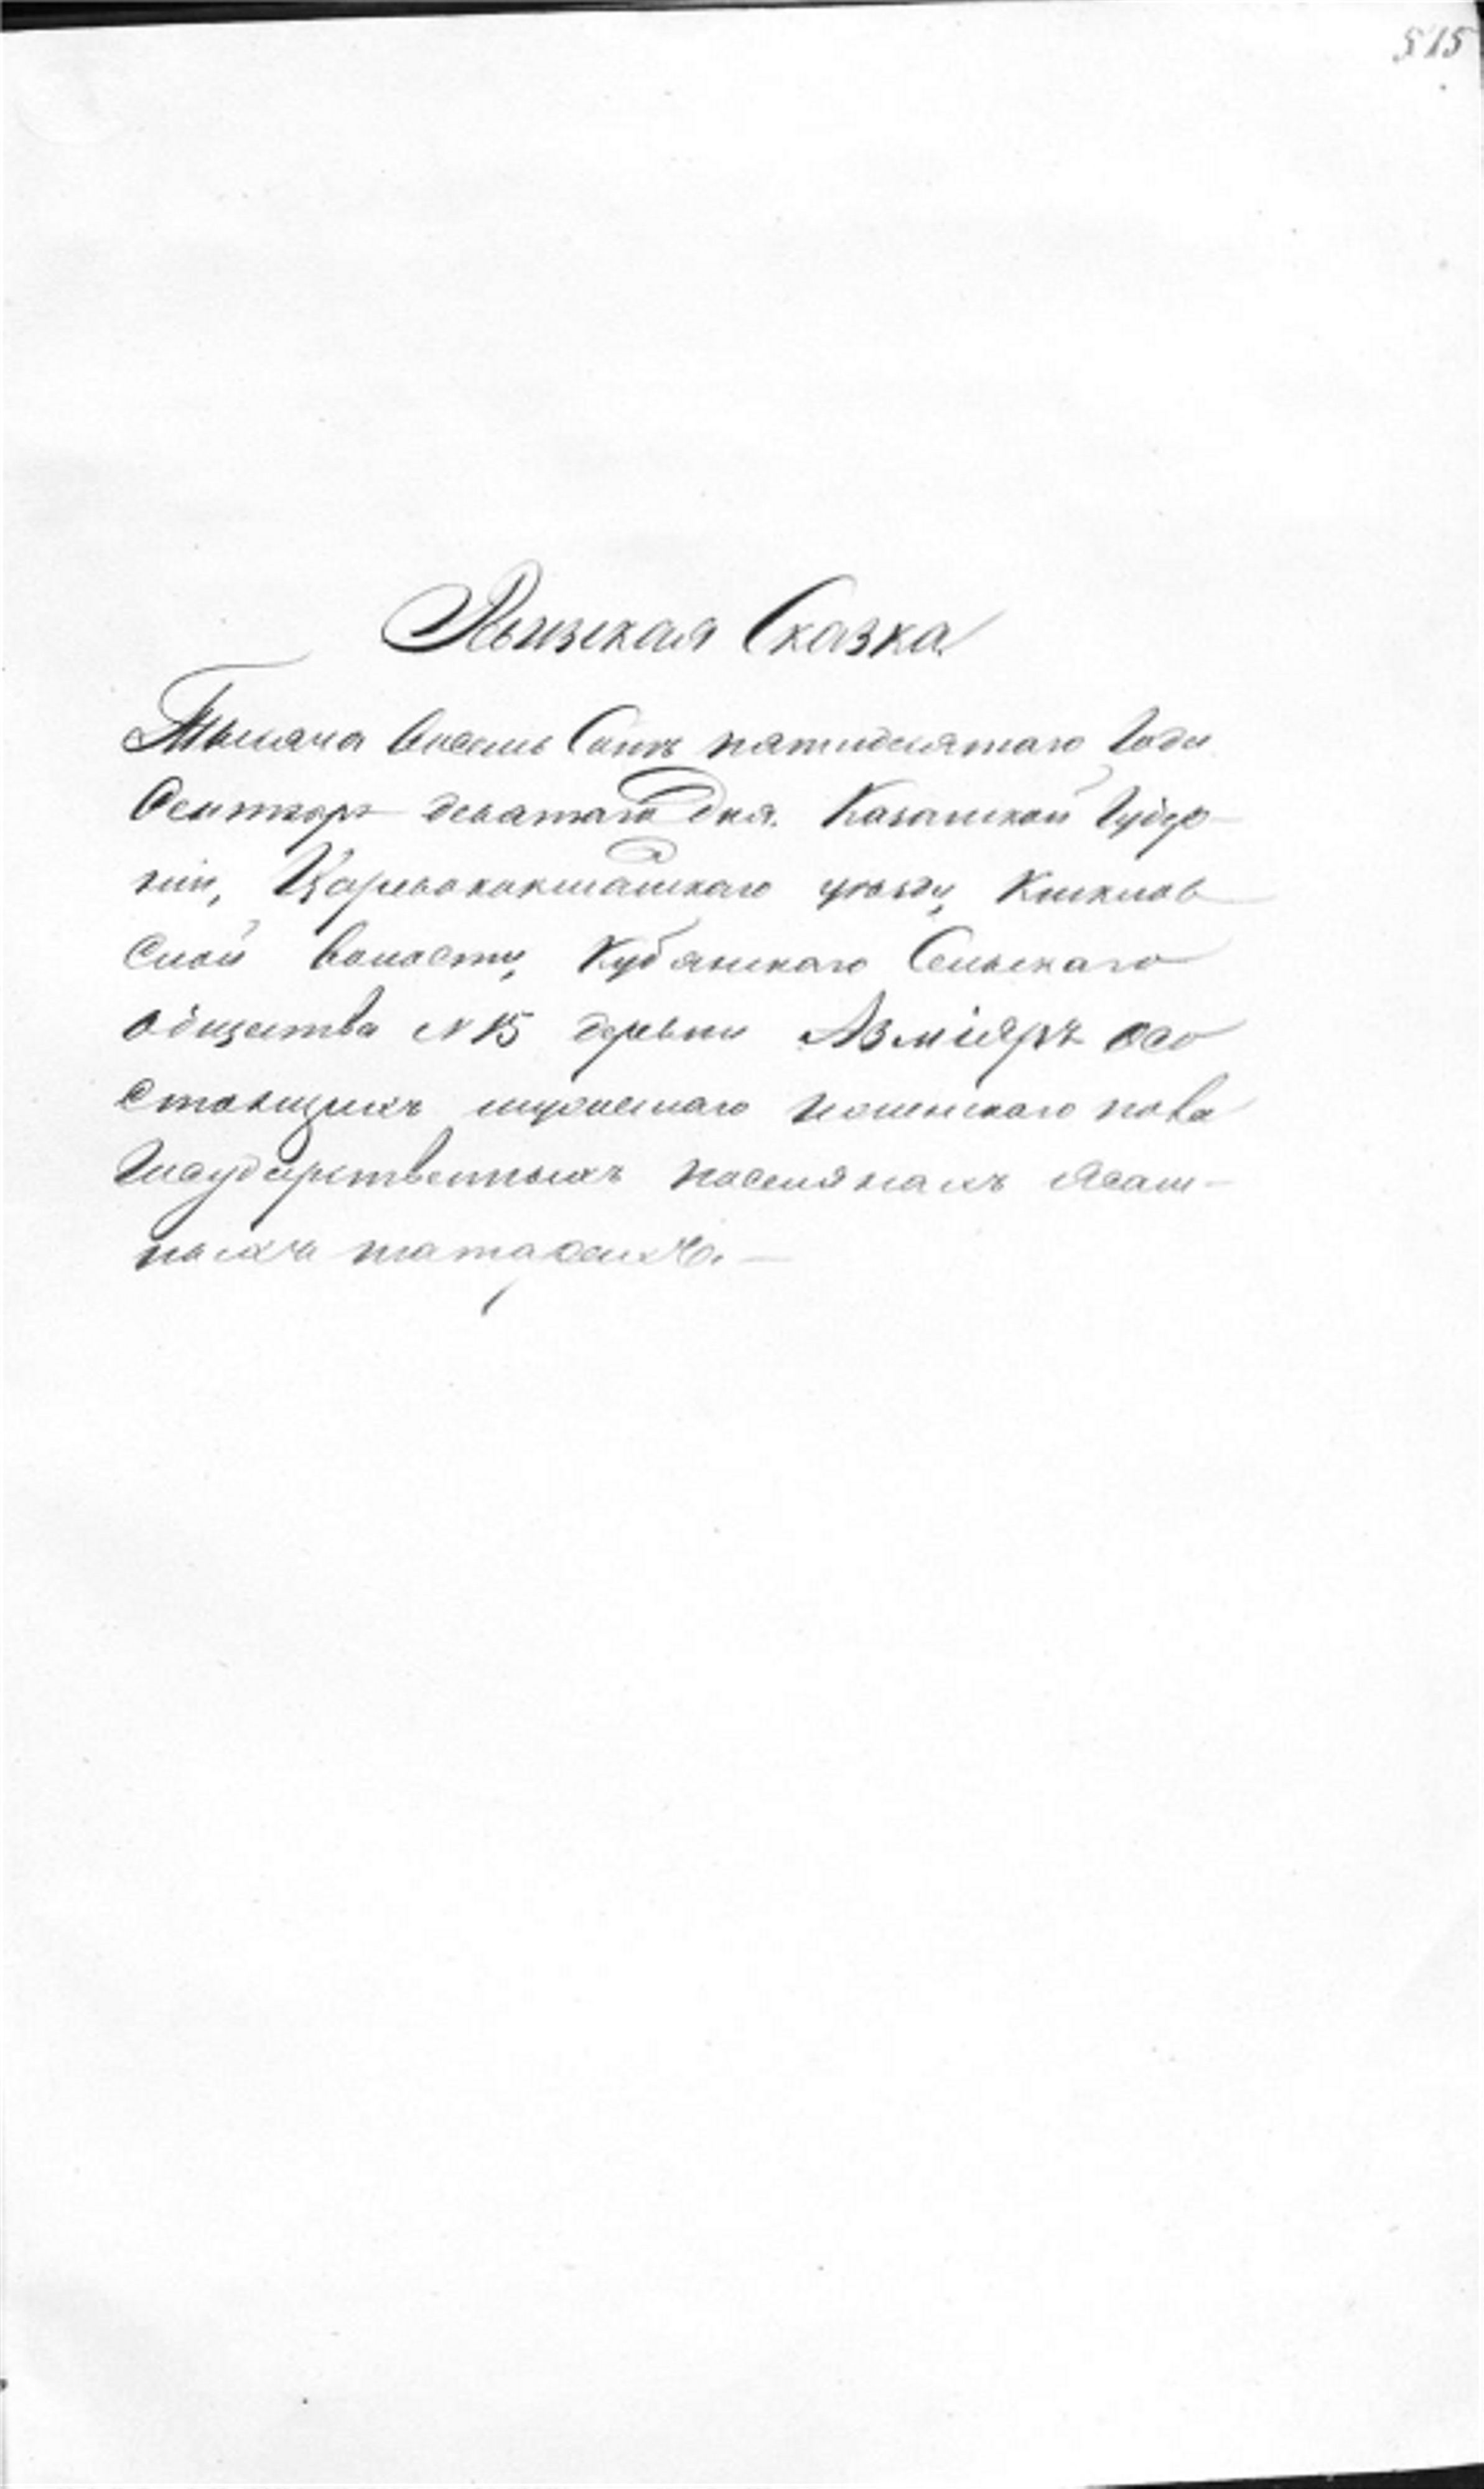 515
Ревизская Сказка
Тысяча восемь Сотъ пятидесятаго Года
Сентября девятаго дня. Казанской Губер-
ніи, Царевококшайскаго уѣзда,
ской волости, Кубянскаго Сельскаго
общества № 15 деревни Азміяръ о со
стоящихъ мужескаго женскаго пола
Государственныхъ поселянахъ Ясаш-
ныхъ татарахъ.